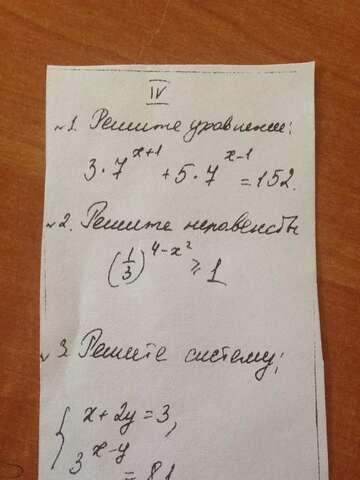 IV
№1. Решите уравнение:
3·7^(x+1) + 5·7^(x-1) = 152.
№2. Решите неравенство
(1/3)^(4-x²) ≥ 1
№3. Решите систему:
{ x+2y=3,
3^(x-y) = 81